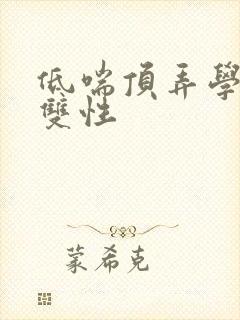 低喘頂弄學
雙性
蒙希克